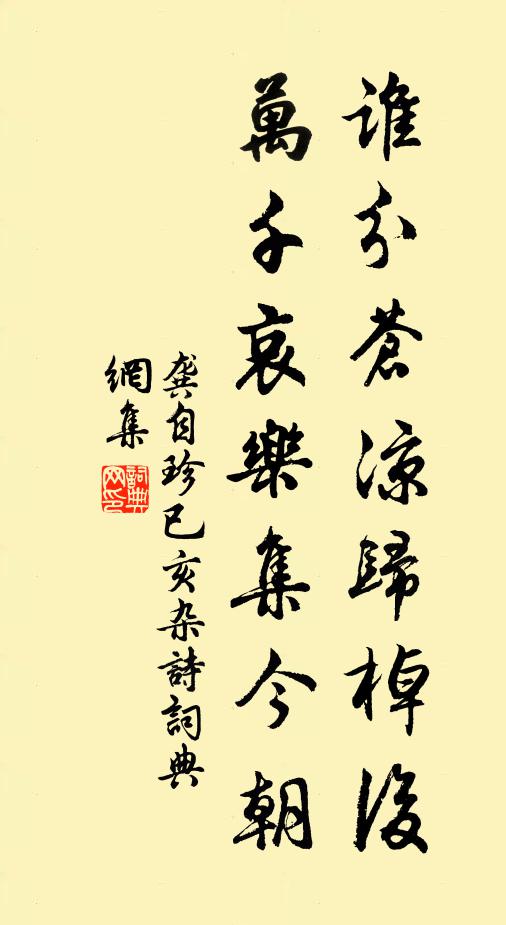 誰分蒼涼歸棹後
萬千哀樂集今朝
龔自珍己亥杂詩詞典
網集
詞典网印